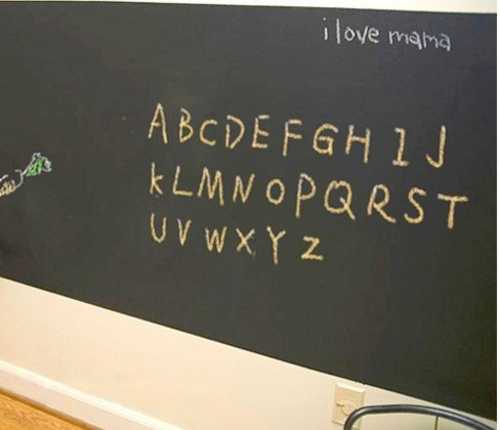 i love mama
ABCDEFGH1J
kLMNOPQRST
UVWXYZ